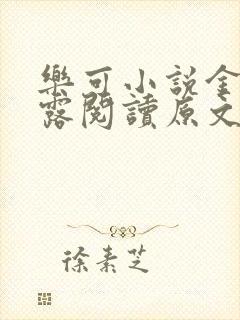 樂可小說金
露閱讀原文
徐素芝